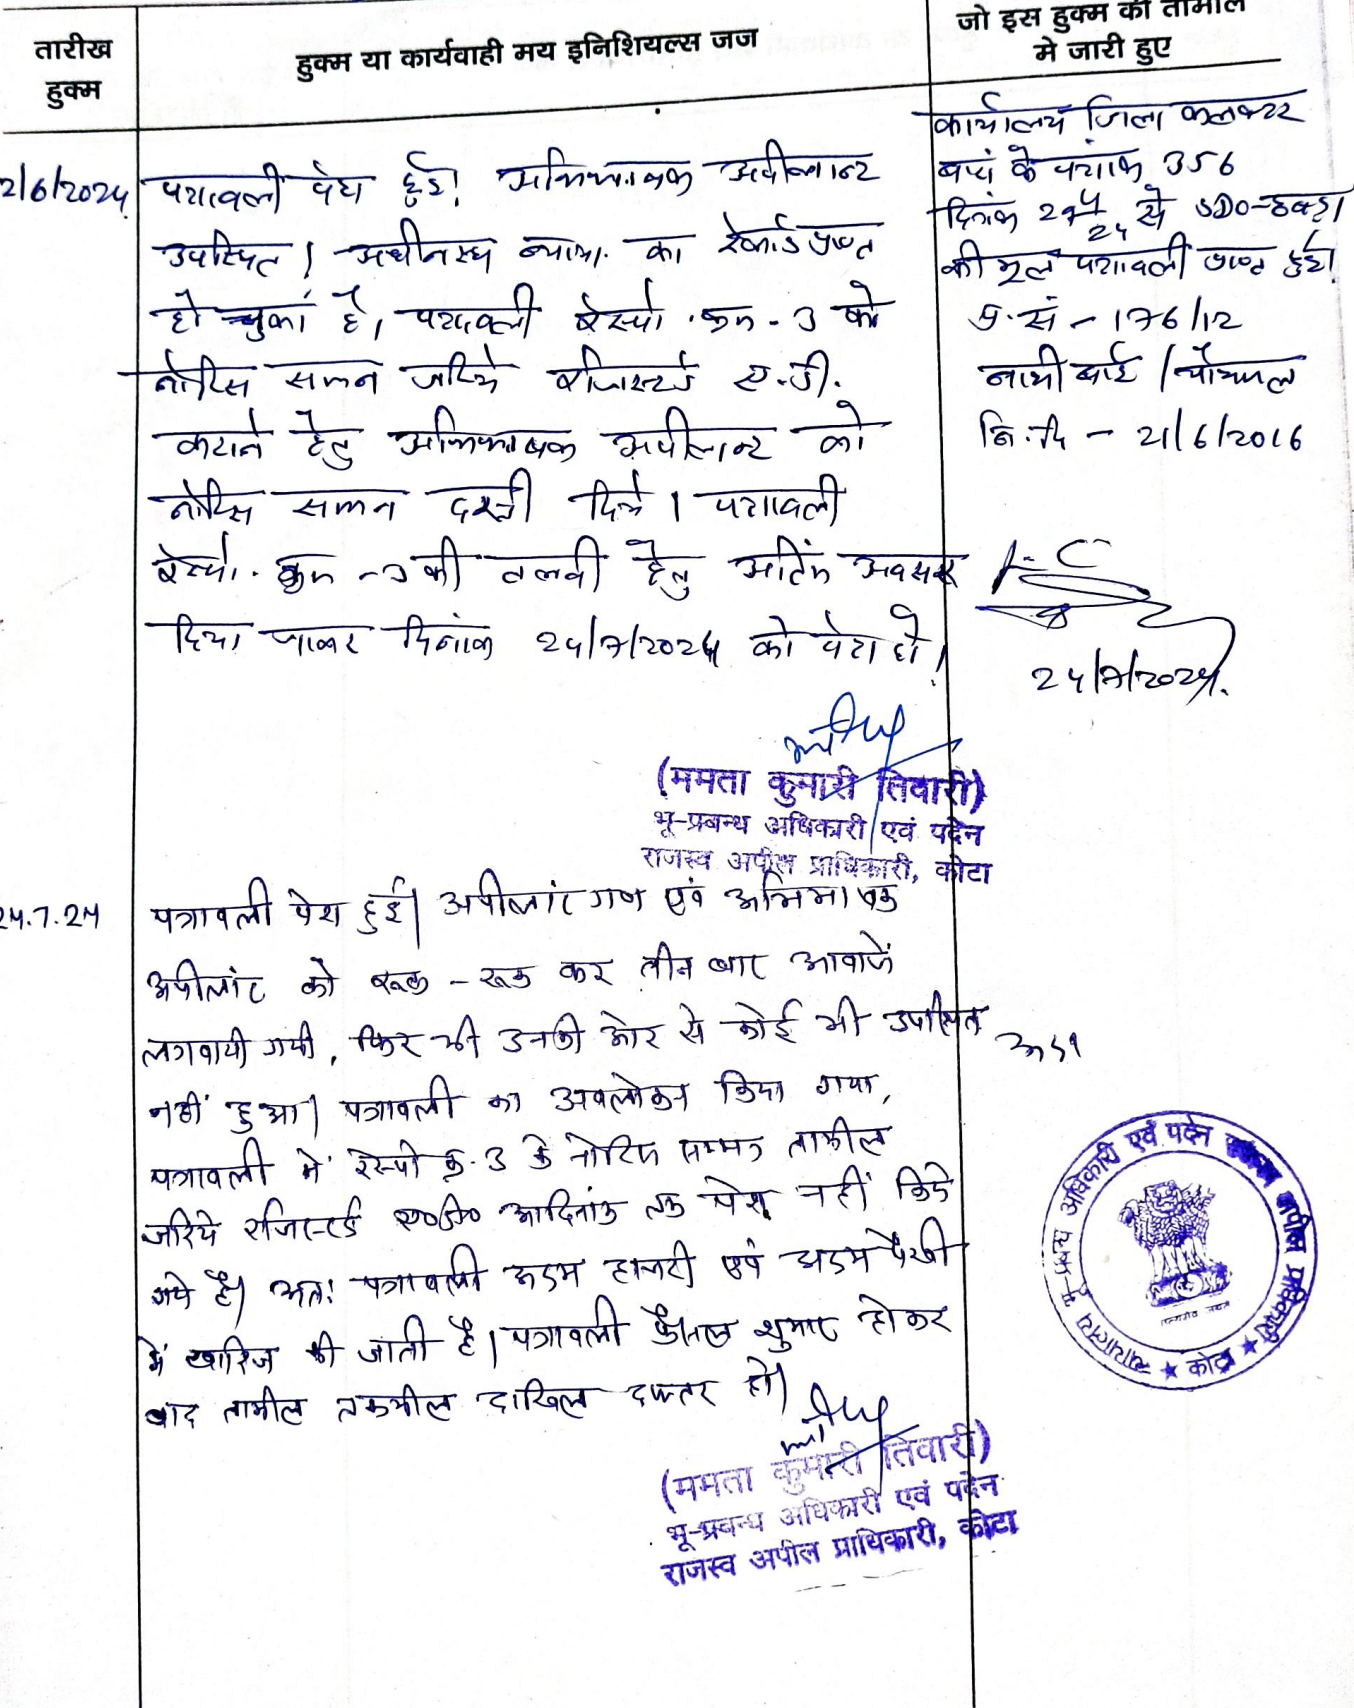 तारीख
हुक्म
हुक्म या कार्यवाही मय इनिशियल्स जज
जो इस हुक्म की तामील
मे जारी हुए
2/6/2024
पत्रावली पेश हुई। अभिभाषक अपीलान्ट
उपस्थित। अधीनस्थ न्याया. का रेकॉर्ड प्राप्त
हो चुका है। पत्रावली रेस्पो. क्रम - 3 को
नोटिस सम्मन जरिये रजिस्टर्ड ए.डी.
कराने हेतु अभिभाषक अपीलान्ट को
नोटिस सम्मन दस्ती दिये। पत्रावली
रेस्पो. क्रम - 3 की तलबी हेतु अंतिम अवसर
दिया जाकर दिनांक 24/7/2024 को पेश हो।
कार्यालय जिला कलक्टर
के पत्रांक 356
दिनांक से SDO-
की मूल पत्रावली प्राप्त हुई।
प्र. सं - 176/12
नाथी बाई /
नि.दि - 21/6/2016
24/7/2024
(ममता कुमारी तिवारी)
भू-प्रबन्ध अधिकारी एवं पदेन
राजस्व अपील प्राधिकारी, कोटा
24.7.24
पत्रावली पेश हुई। अपीलांट गण एवं अभिभाषक
अपीलांट को रूक - रूक कर तीन बार आवाजें
लगवायी गयी, फिर भी उनकी ओर से कोई भी उपस्थित
नहीं हुआ। पत्रावली का अवलोकन किया गया,
पत्रावली में रेस्पो क्र. 3 के नोटिस सम्मन तामील
जरिये रजिस्टर्ड ए०डी० आदिनांक तक पेश नहीं किये
गये है। अतः पत्रावली अदम हाजरी एवं अदम पैरवी
में खारिज की जाती है। पत्रावली फैसल शुमार होकर
बाद तामील तकमील दाखिल दफ्तर हो।
(ममता कुमारी तिवारी)
भू-प्रबन्ध अधिकारी एवं पदेन
राजस्व अपील प्राधिकारी, कोटा
न्यायालय भू-प्रबन्ध अधिकारी एवं पदेन अपील प्राधिकारी
★ कोटा ★